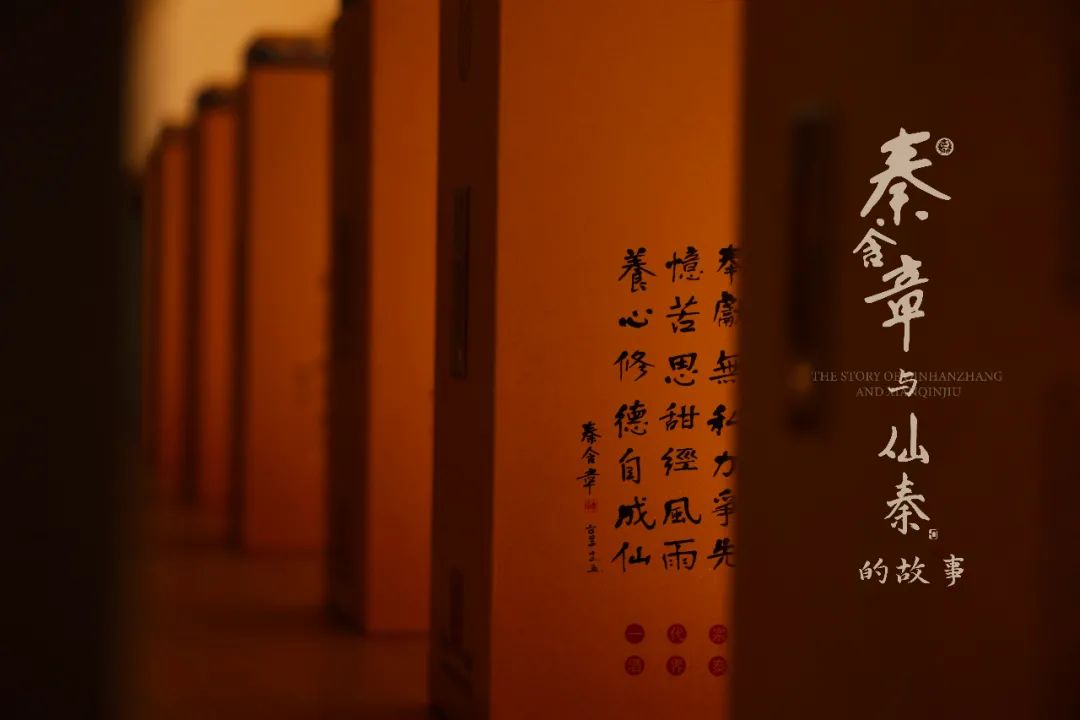 奉獻無私力爭先
憶苦思甜經風雨
養心修德自成仙
秦含章
一代宗
酒界泰
秦含章
与
仙秦
的故事
THE STORY OF QINHANZHANG
AND XIANQINJIU